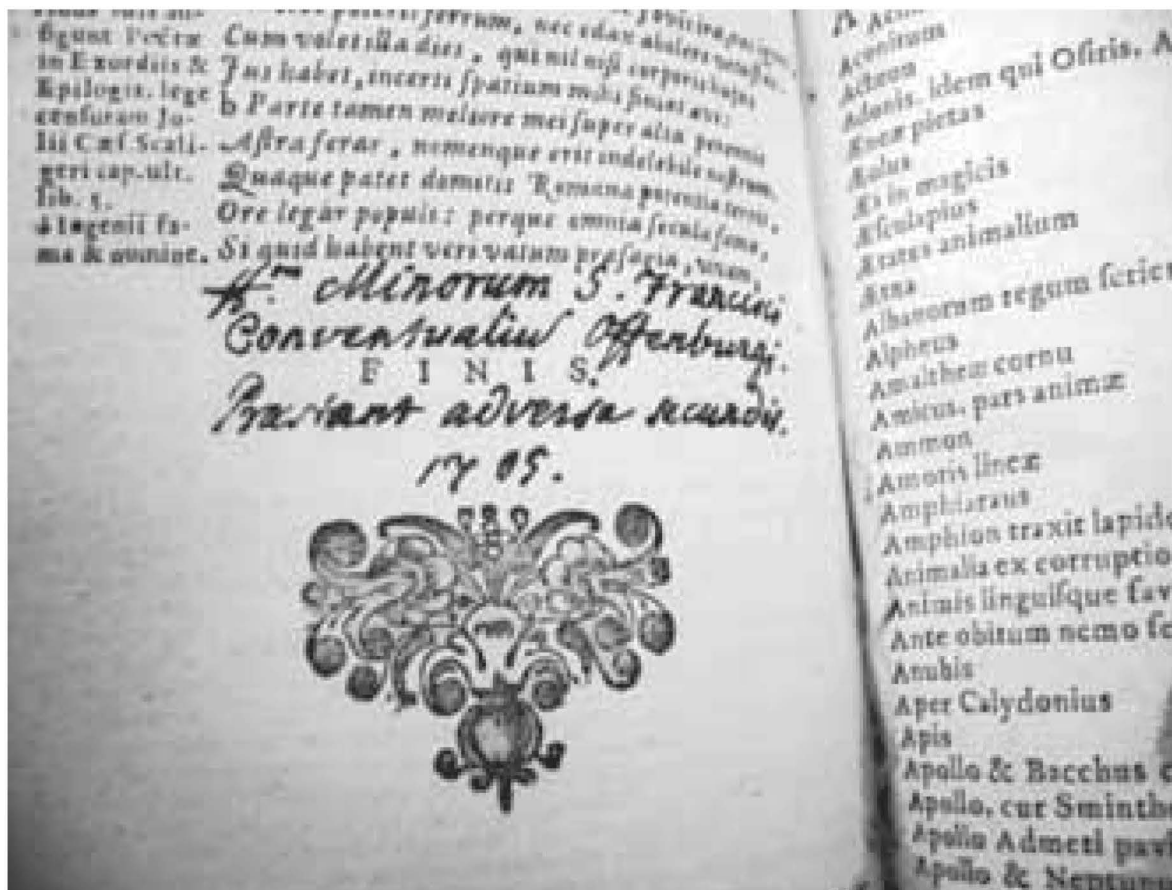 figunt
in Exordiis &
Epilogis. lege
censuram Ju-
lii Cæs. Scali-
geri cap. ult.
lib. 5.
a Ingenii fa-
ma & nomine.
ferrum, nec edax abolere
Cum volet illa dies, quæ nil nisi corporis hujus
Jus habet, incerti spatium mihi finiat ævi:
b Parte tamen meliore mei super alta perennis
Astra ferar, nomenque erit indelebile nostrum.
Quaque patet domitis Romana potentia terris,
Ore legar populi: perque omnia secula fama,
Si quid habent veri vatum præsagia, vivam.
Minorum S. Francisci
Conventualiū Offenburgi.
FINIS.
Præstant adversa secundis.
1705.
Aconitum
Acteon
Adonis. idem qui Osiris.
Æneæ pietas
Æolus
Æs in magicis
Æsculapius
Ætates animalium
Ætna
Albanorum regum
Alpheus
Amaltheæ cornu
Amicus, pars animæ
Ammon
Amoris lineæ
Amphiaraus
Amphion traxit
Animalia ex
Animis linguisque
Ante obitum nemo
Anubis
Aper Calydonius
Apis
Apollo & Bacchus
Apollo, cur
Apollo Admeti
Apollo &